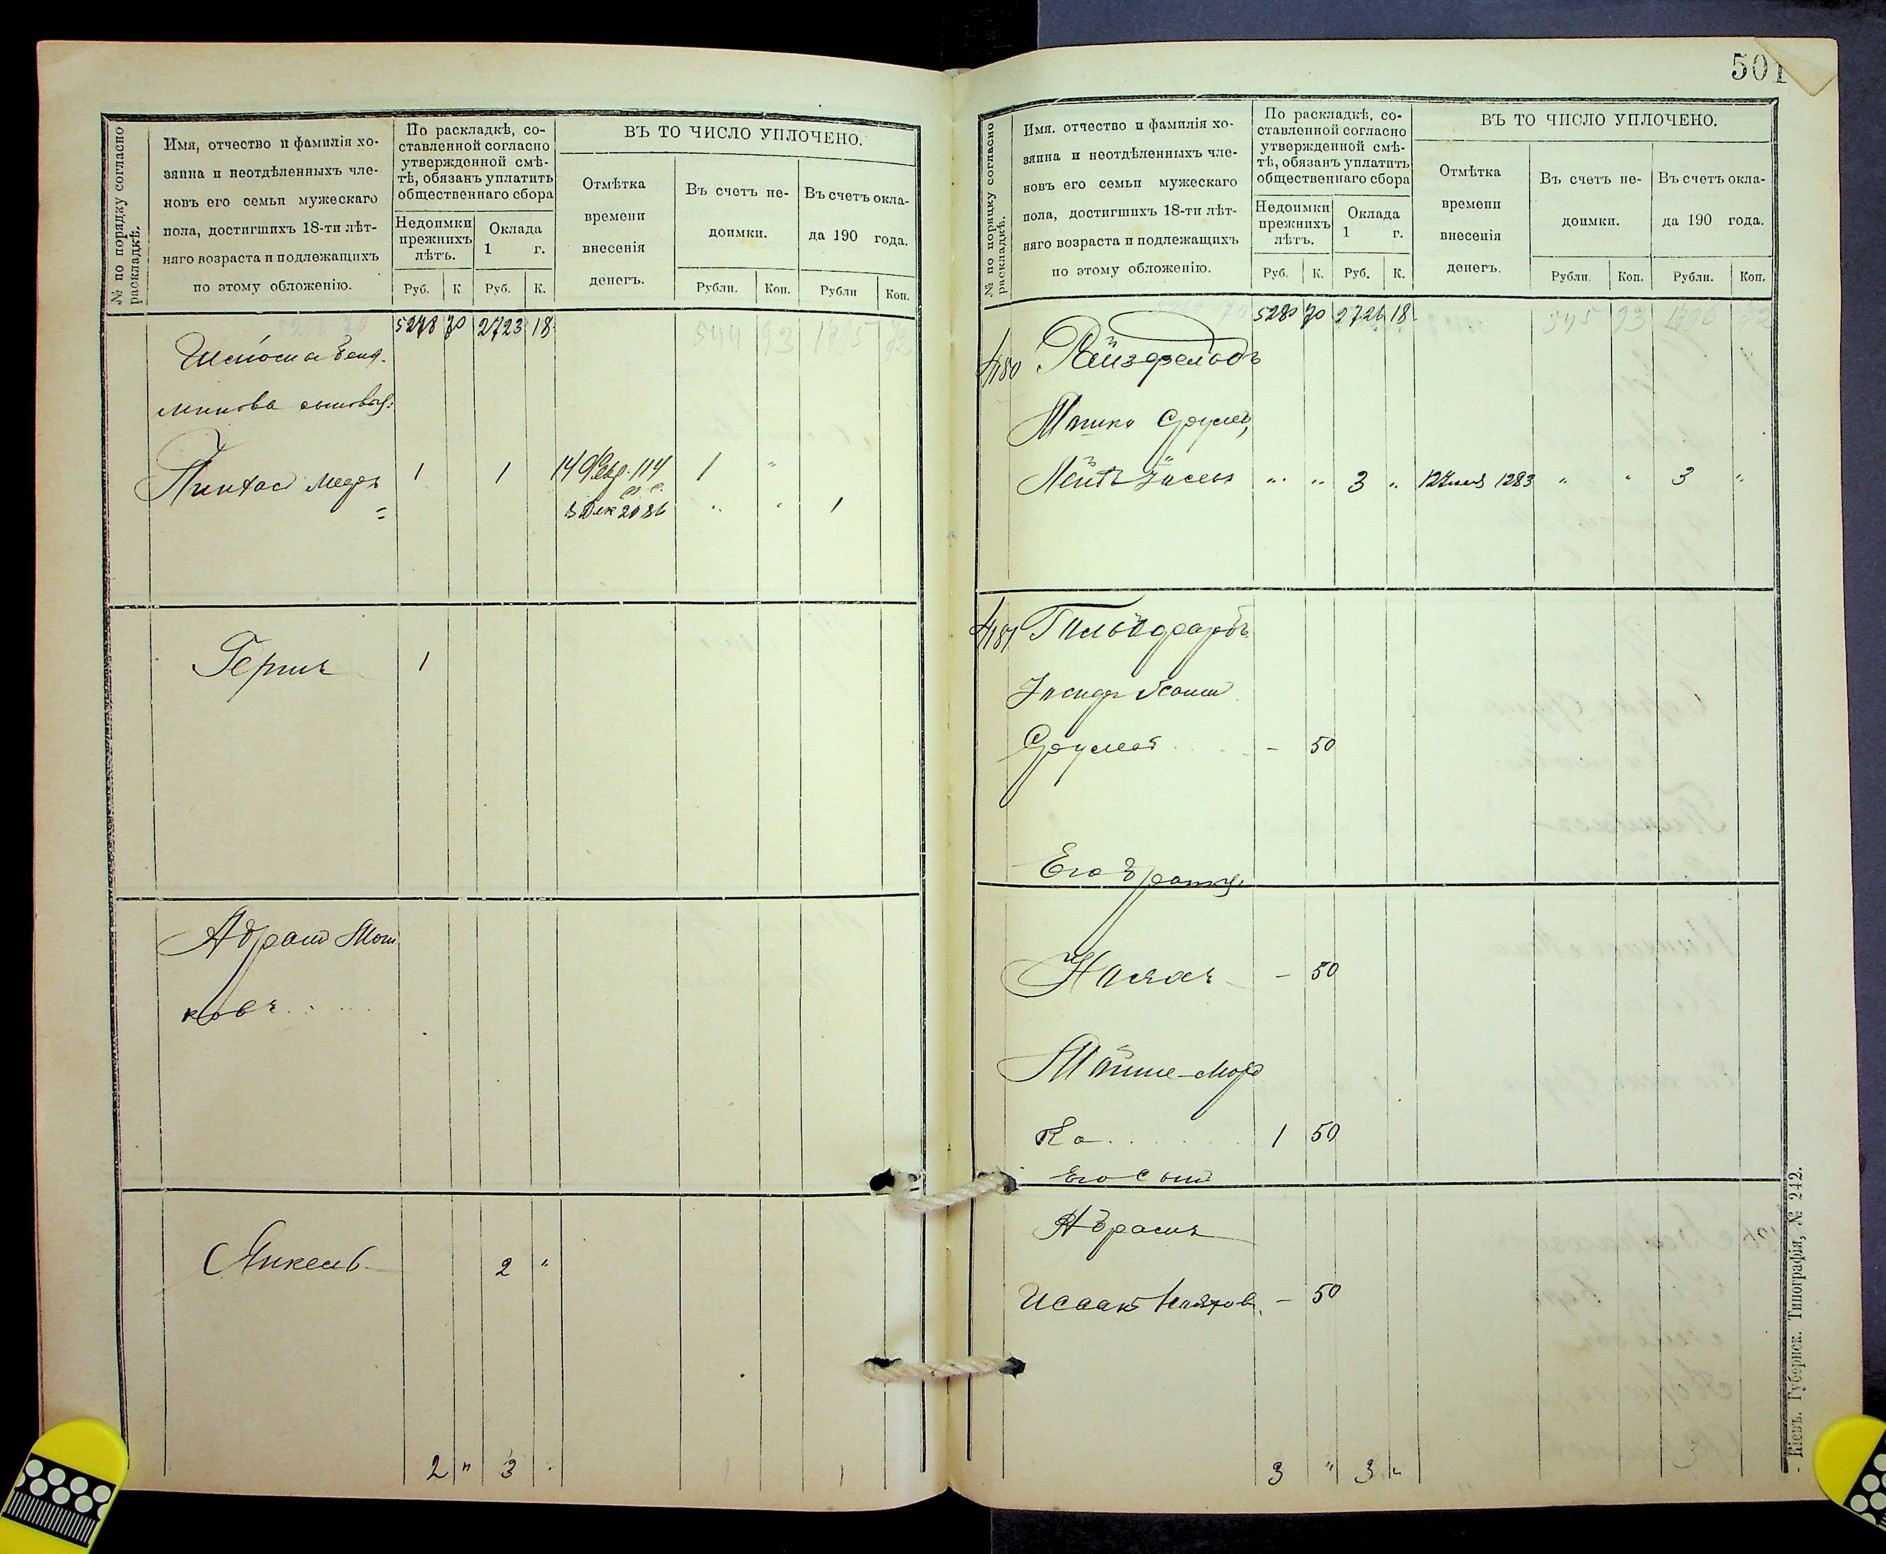 № по порядку согласно
раскладкѣ.
Имя, отчество и фамилія хо-
зяина и неотдѣленныхъ чле-
новъ его семьи мужескаго
пола, достигшихъ 18-ти лѣт-
няго возраста и подлежащихъ
по этому обложенію.
По раскладкѣ, со-
ставленной согласно
утвержденной смѣ-
тѣ, обязанъ уплатить
общественнаго сбора
Недоимки
прежнихъ
лѣтъ.
Оклада
1 г.
Руб. К Руб. К.
ВЪ ТО ЧИСЛО УПЛОЧЕНО.
Отмѣтка
времени
внесенія
денегъ.
Въ счетъ не-
доимки.
Въ счетъ окла-
да 190 года.
Рубли. Коп. Рубли Коп.
5278 70 2723 18
544 93 1895
сыновья:
Пинхас 1 1 14 Февр. 114 1 "
3 Дек 2086 " " 1
Герш 1
Абрам Мош
ков
Янкель 2 "
2 " 3 1
501
№ по порядку согласно
раскладкѣ.
Имя. отчество и фамилія хо-
зяина и неотдѣленныхъ чле-
новъ его семьи мужескаго
пола, достигшихъ 18-ти лѣт-
няго возраста и подлежащихъ
по этому обложенію.
По раскладкѣ, со-
ставленной согласно
утвержденной смѣ-
тѣ, обязанъ уплатить
общественнаго сбора
Недоимки
прежнихъ
лѣтъ.
Оклада
1 г.
Руб. К. Руб. К.
ВЪ ТО ЧИСЛО УПЛОЧЕНО.
Отмѣтка
времени
внесенія
денегъ.
Въ счетъ не-
доимки.
Въ счетъ окла-
да 190 года.
Рубли. Коп. Рубли. Коп.
5280 70 2726 18 545 93 1896
4180 Ройзфельдъ
Мошко Срулев
" " 3 " 1283 " " 3 "
4181 Гильдфарбъ
Срулев - 50
Его братья
- 50
Мойше-Мор
ко 1 50
Его сын
Абрамъ
Исаак - 50
3 " 3 "
Кіевъ. Губернск. Типографія, № 242.